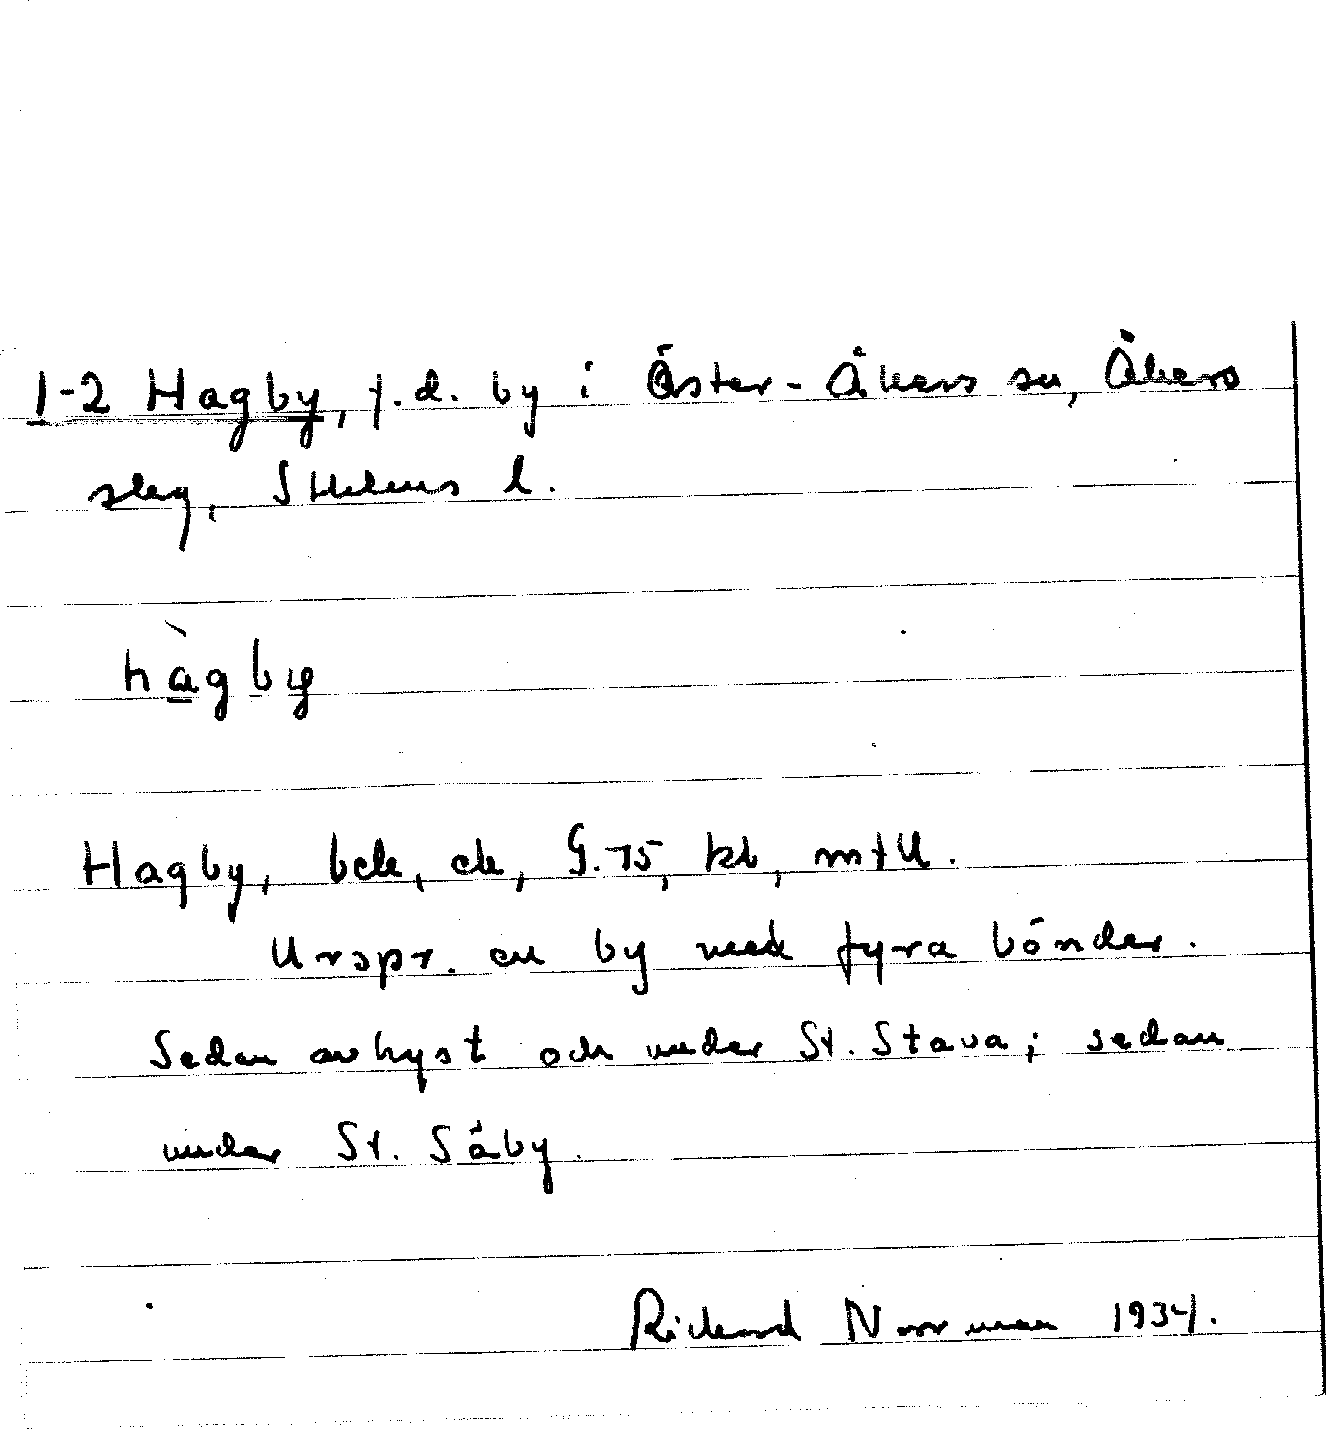 1-2 Hagby, f.d. by i Öster-Åkers sn, Åkers
slag, Sthlms l.
hàgby
Hagby, bek, ek, G.75, kb, mtU.
Urspr. en by med fyra bönder.
Sedan avhyst och under St. Stava; sedan
under St. Säby.
Rickard Norrman 1934.